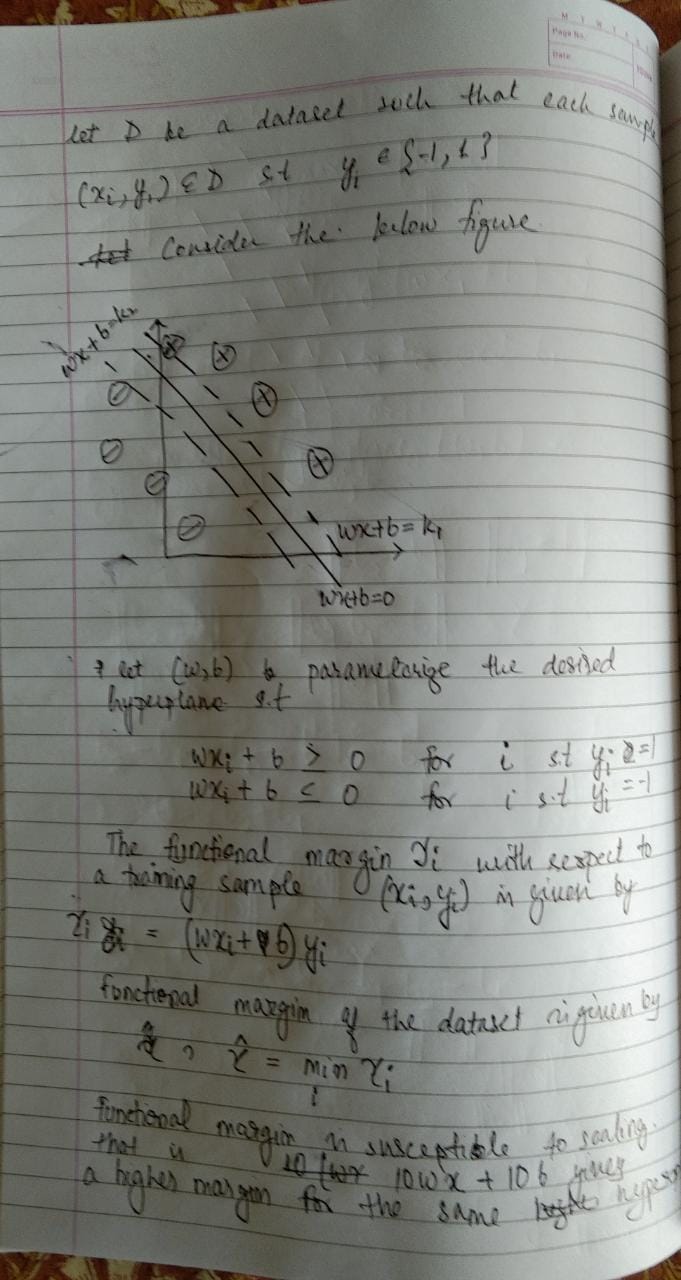 M T W T F S
Page No.
Date:
let D be a dataset such that each sample
(xi, yi) ∈ D s.t yi ∈ {-1, 1}
Consider the below figure.
wx+b=k2
wx+b=k1
wx+b=0
let (w,b) parameterize the desired
hyperplane s.t
wxi + b ≥ 0 for i s.t yi = 1
wxi + b ≤ 0 for i s.t yi = -1
The functional margin γi with respect to
a training sample (xi, yi) is given by
γi = (wxi + b) yi
functional margin of the dataset is given by
γ̂ , γ̂ = min γi
i
functional margin is susceptible to scaling.
that is 10wx + 10b gives
a higher margin for the same